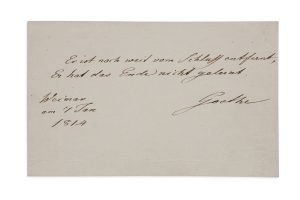 Er ist noch weit vom Schluss entfernt,
Er hat das Ende nicht gelernt
Weimar
am 7 Jan
1814
Goethe